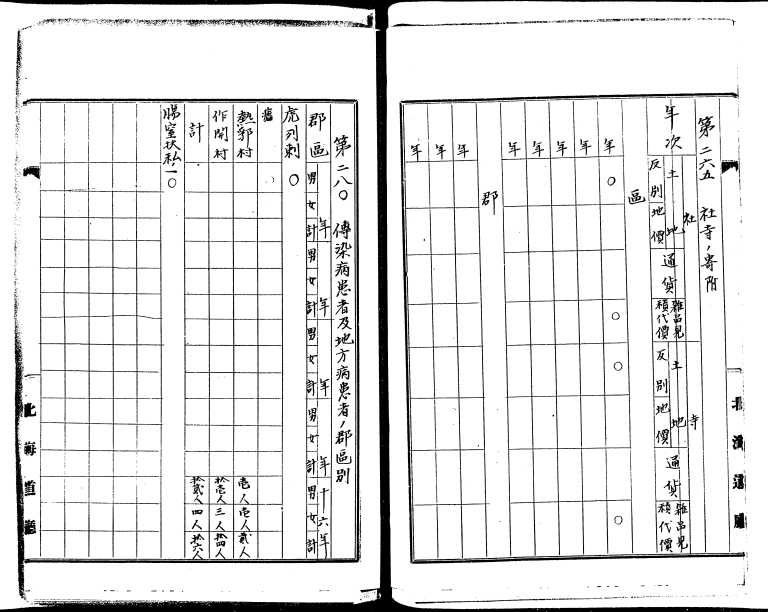 第二六五 社寺ノ寄附
年次
社
土地
反別
地價
通貨
雑品見積代價
寺
土地
反別
地價
通貨
雑品見積代價
區
年 ○ ○ ○ ○
年
年
年
年
郡
年
年
年
北海道廳
第二八〇 傳染病患者及地方病患者ノ郡區別
郡區
年 男 女 計
年 男 女 計
年 男 女 計
年 男 女 計
十六年 男 女 計
虎列剌 ○
熱郛村 壱人 壱人 貳人
作開村 拾壱人 三人 拾四人
計 拾貳人 四人 拾六人
腸窒扶私 ○
北海道廳